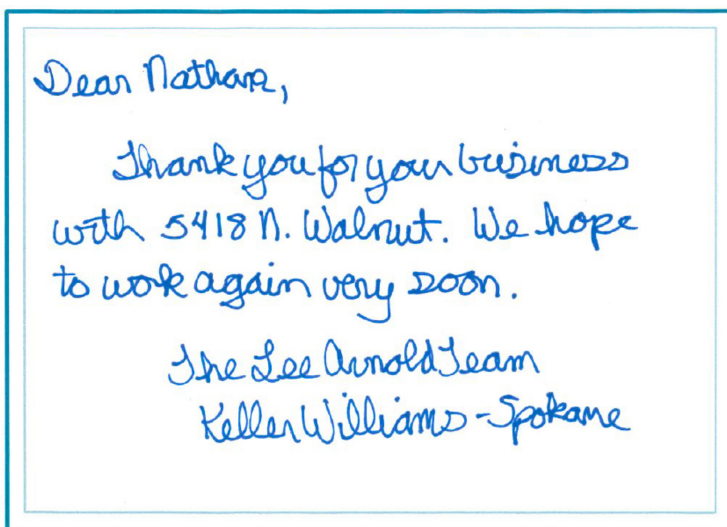 Dear Nathan,
Thank you for your business
with 5418 N. Walnut. We hope
to work again very soon.
The Lee Arnold Team
Keller Williams - Spokane